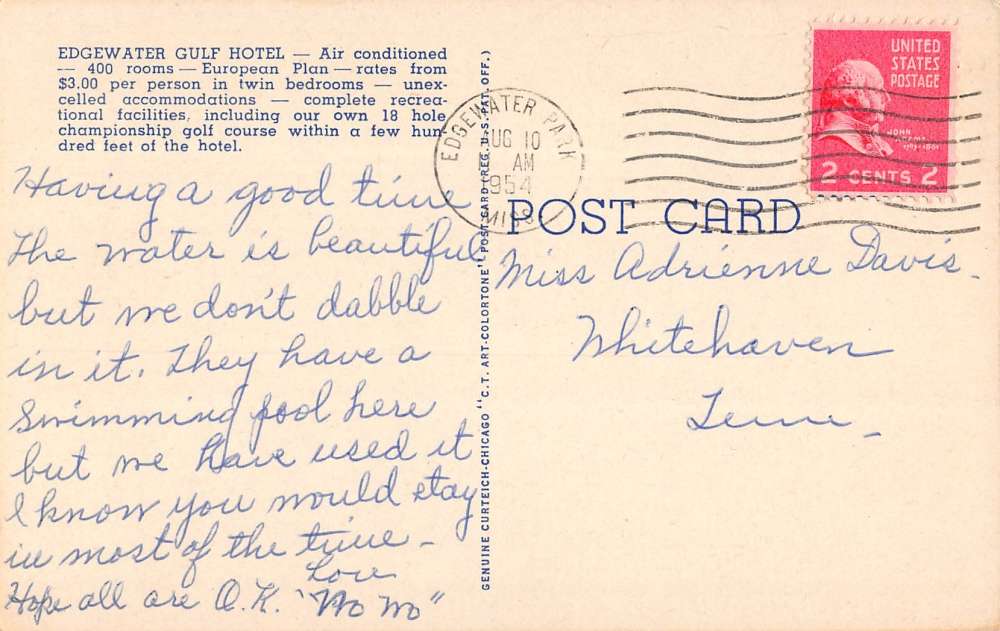 EDGEWATER GULF HOTEL — Air conditioned
— 400 rooms — European Plan — rates from
$3.00 per person in twin bedrooms — unex-
celled accommodations — complete recrea-
tional facilities, including our own 18 hole
championship golf course within a few hun
dred feet of the hotel.
Having a good time
The water is beautiful
but we don't dabble
in it. They have a
swimming pool here
but we have used it
I know you would stay
in most of the time -
Hope all are O.K. Love
"Wo Wo"
GENUINE CURTEICH-CHICAGO "C.T. ART-COLORTONE" POST CARD (REG. U.S. PAT. OFF.)
EDGEWATER PARK
AUG 10
AM
1954
MISS
UNITED
STATES
POSTAGE
JOHN
2 CENTS 2
POST CARD
Miss Adrienne Davis.
Whitehaven
Tenn -